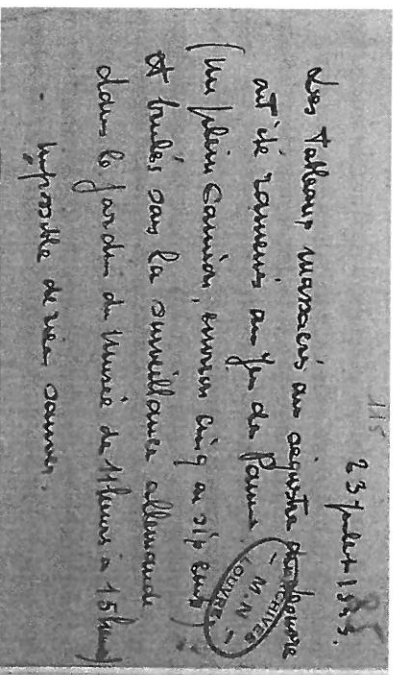 115
23 juillet 1943.
Les Tableaux massacrés au séquestre du Louvre
ont été ramenés au Jeu de Paume
(un plein camion, environ cinq à six cents)
et brulés sous la surveillance allemande
dans le jardin du Musée de 11 heures à 15 heures)
- Impossible de rien sauver.
CHIVES
- M.N -
LOUVRE